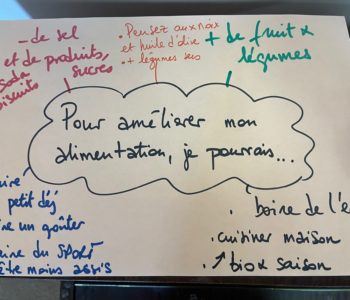 - de sel
et de produits
sucrés
soda
biscuits
• Pensez aux noix
et huile d'olive
• + légumes secs
+ de fruit &
légumes
Pour améliorer mon
alimentation, je pourrais...
petit déj
un goûter
faire du SPORT
être moins assis
boire de l'e
• cuisiner maison
• ↗ bio & saison